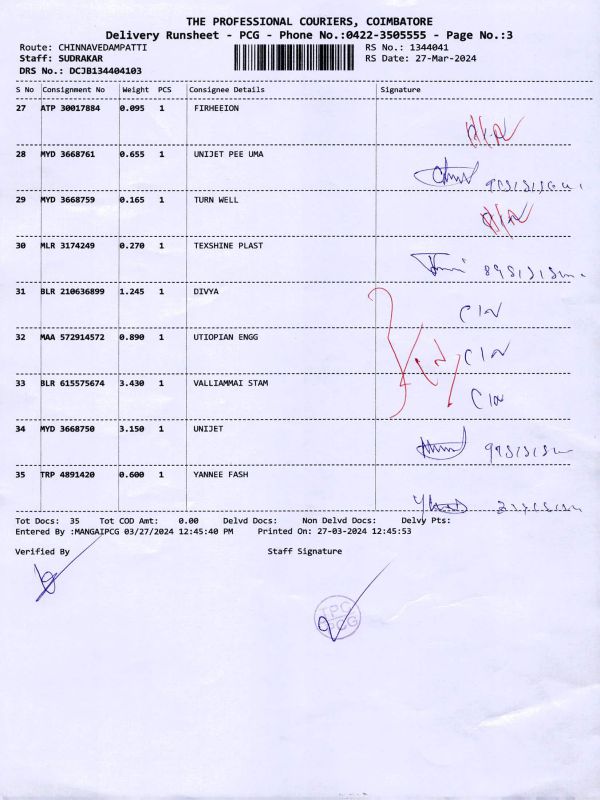 THE PROFESSIONAL COURIERS, COIMBATORE
Delivery Runsheet - PCG - Phone No.:0422-3505555 - Page No.:3
Route: CHINNAVEDAMPATTI RS No.: 1344041
Staff: SUDRAKAR RS Date: 27-Mar-2024
DRS No.: DCJB134404103
S No Consignment No Weight PCS Consignee Details Signature
27 ATP 30017884 0.095 1 FIRHEEION
28 MYD 3668761 0.655 1 UNIJET PEE UMA
29 MYD 3668759 0.165 1 TURN WELL
30 MLR 3174249 0.270 1 TEXSHINE PLAST
31 BLR 210636899 1.245 1 DIVYA
32 MAA 572914572 0.890 1 UTIOPIAN ENGG
33 BLR 615575674 3.430 1 VALLIAMMAI STAM
34 MYD 3668750 3.150 1 UNIJET
35 TRP 4891420 0.600 1 YANNEE FASH
Tot Docs: 35 Tot COD Amt: 0.00 Delvd Docs: Non Delvd Docs: Delvy Pts:
Entered By :MANGAIPCG 03/27/2024 12:45:40 PM Printed On: 27-03-2024 12:45:53
Verified By Staff Signature
TPC
PCG